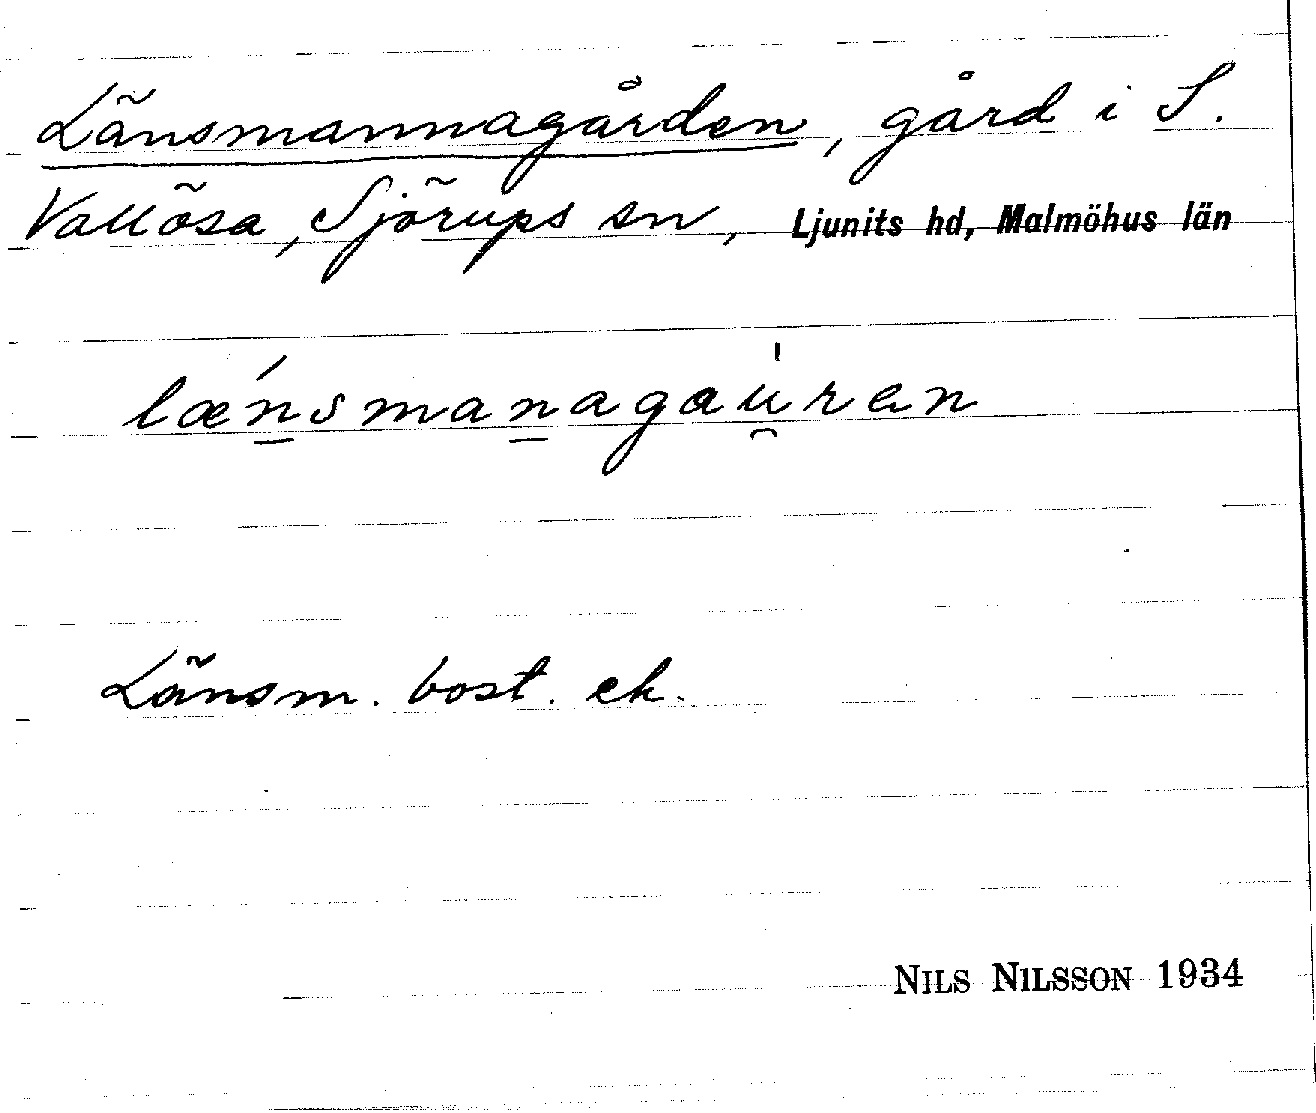 Länsmannagården, gård i S.
Vallösa, Sjörups sn, Ljunits hd, Malmöhus län
lǽn̲sman̲agau̯̍ren
Länsm. bost. ek.
NILS NILSSON 1934